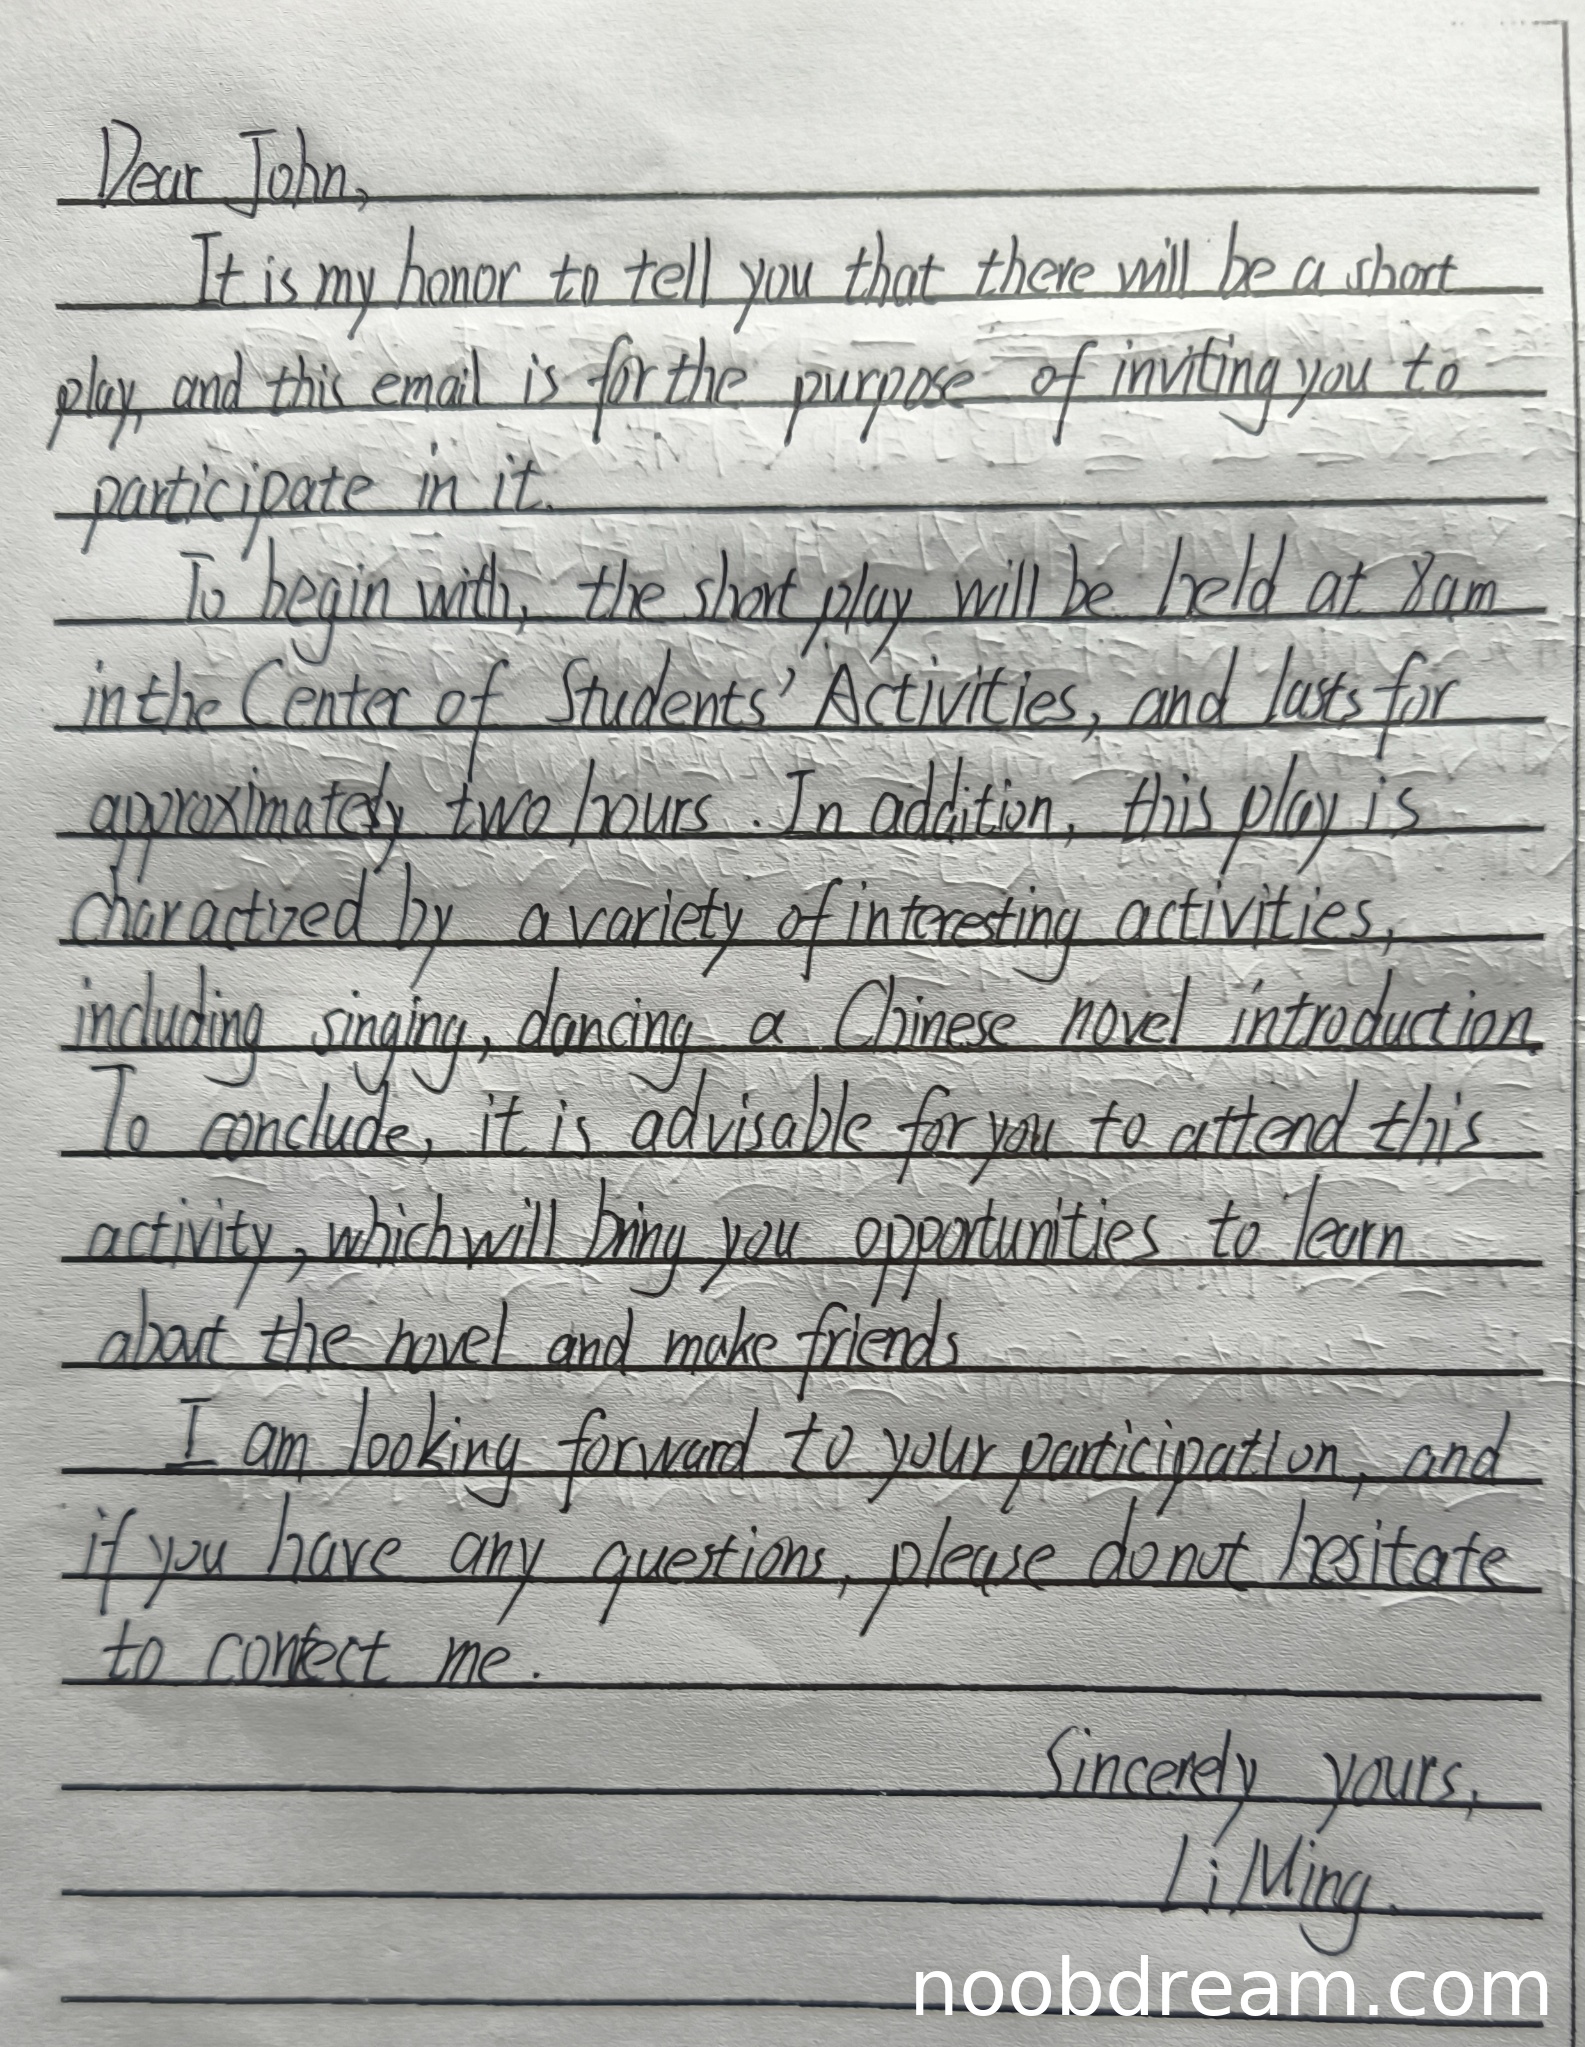 Dear John,
It is my honor to tell you that there will be a short
play, and this email is for the purpose of inviting you to
participate in it.
To begin with, the short play will be held at 8am
in the Center of Students' Activities, and lasts for
approximately two hours. In addition, this play is
charactized by a variety of interesting activities,
including singing, dancing a Chinese novel introduction.
To conclude, it is advisable for you to attend this
activity, which will bring you opportunities to learn
about the novel and make friends
I am looking forward to your participation, and
if you have any questions, please do not hesitate
to contect me.
Sincerely yours,
Li Ming.
noobdream.com